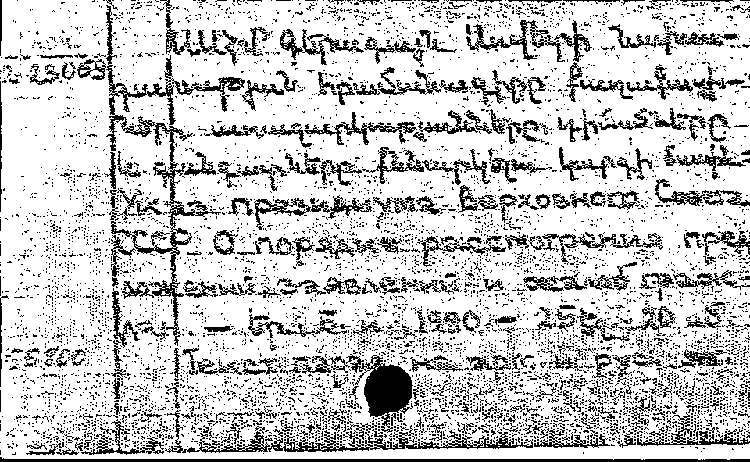 ՍՍՀՄ Գերագույն Սովետի Նախա-
2-23069 գահության հրամանագիրը քաղաքացի-
ների առաջարկությունները, դիմումները
և գանգատները քննարկելու կարգի մասին
Указ президиума Верховного Совета
СССР О порядке рассмотрения пред
ложений, заявлений и жалоб граж-
дан. — Եր., 1980 — 25 էջ, 20 սմ
Текст парал. на арм. и рус. яз.